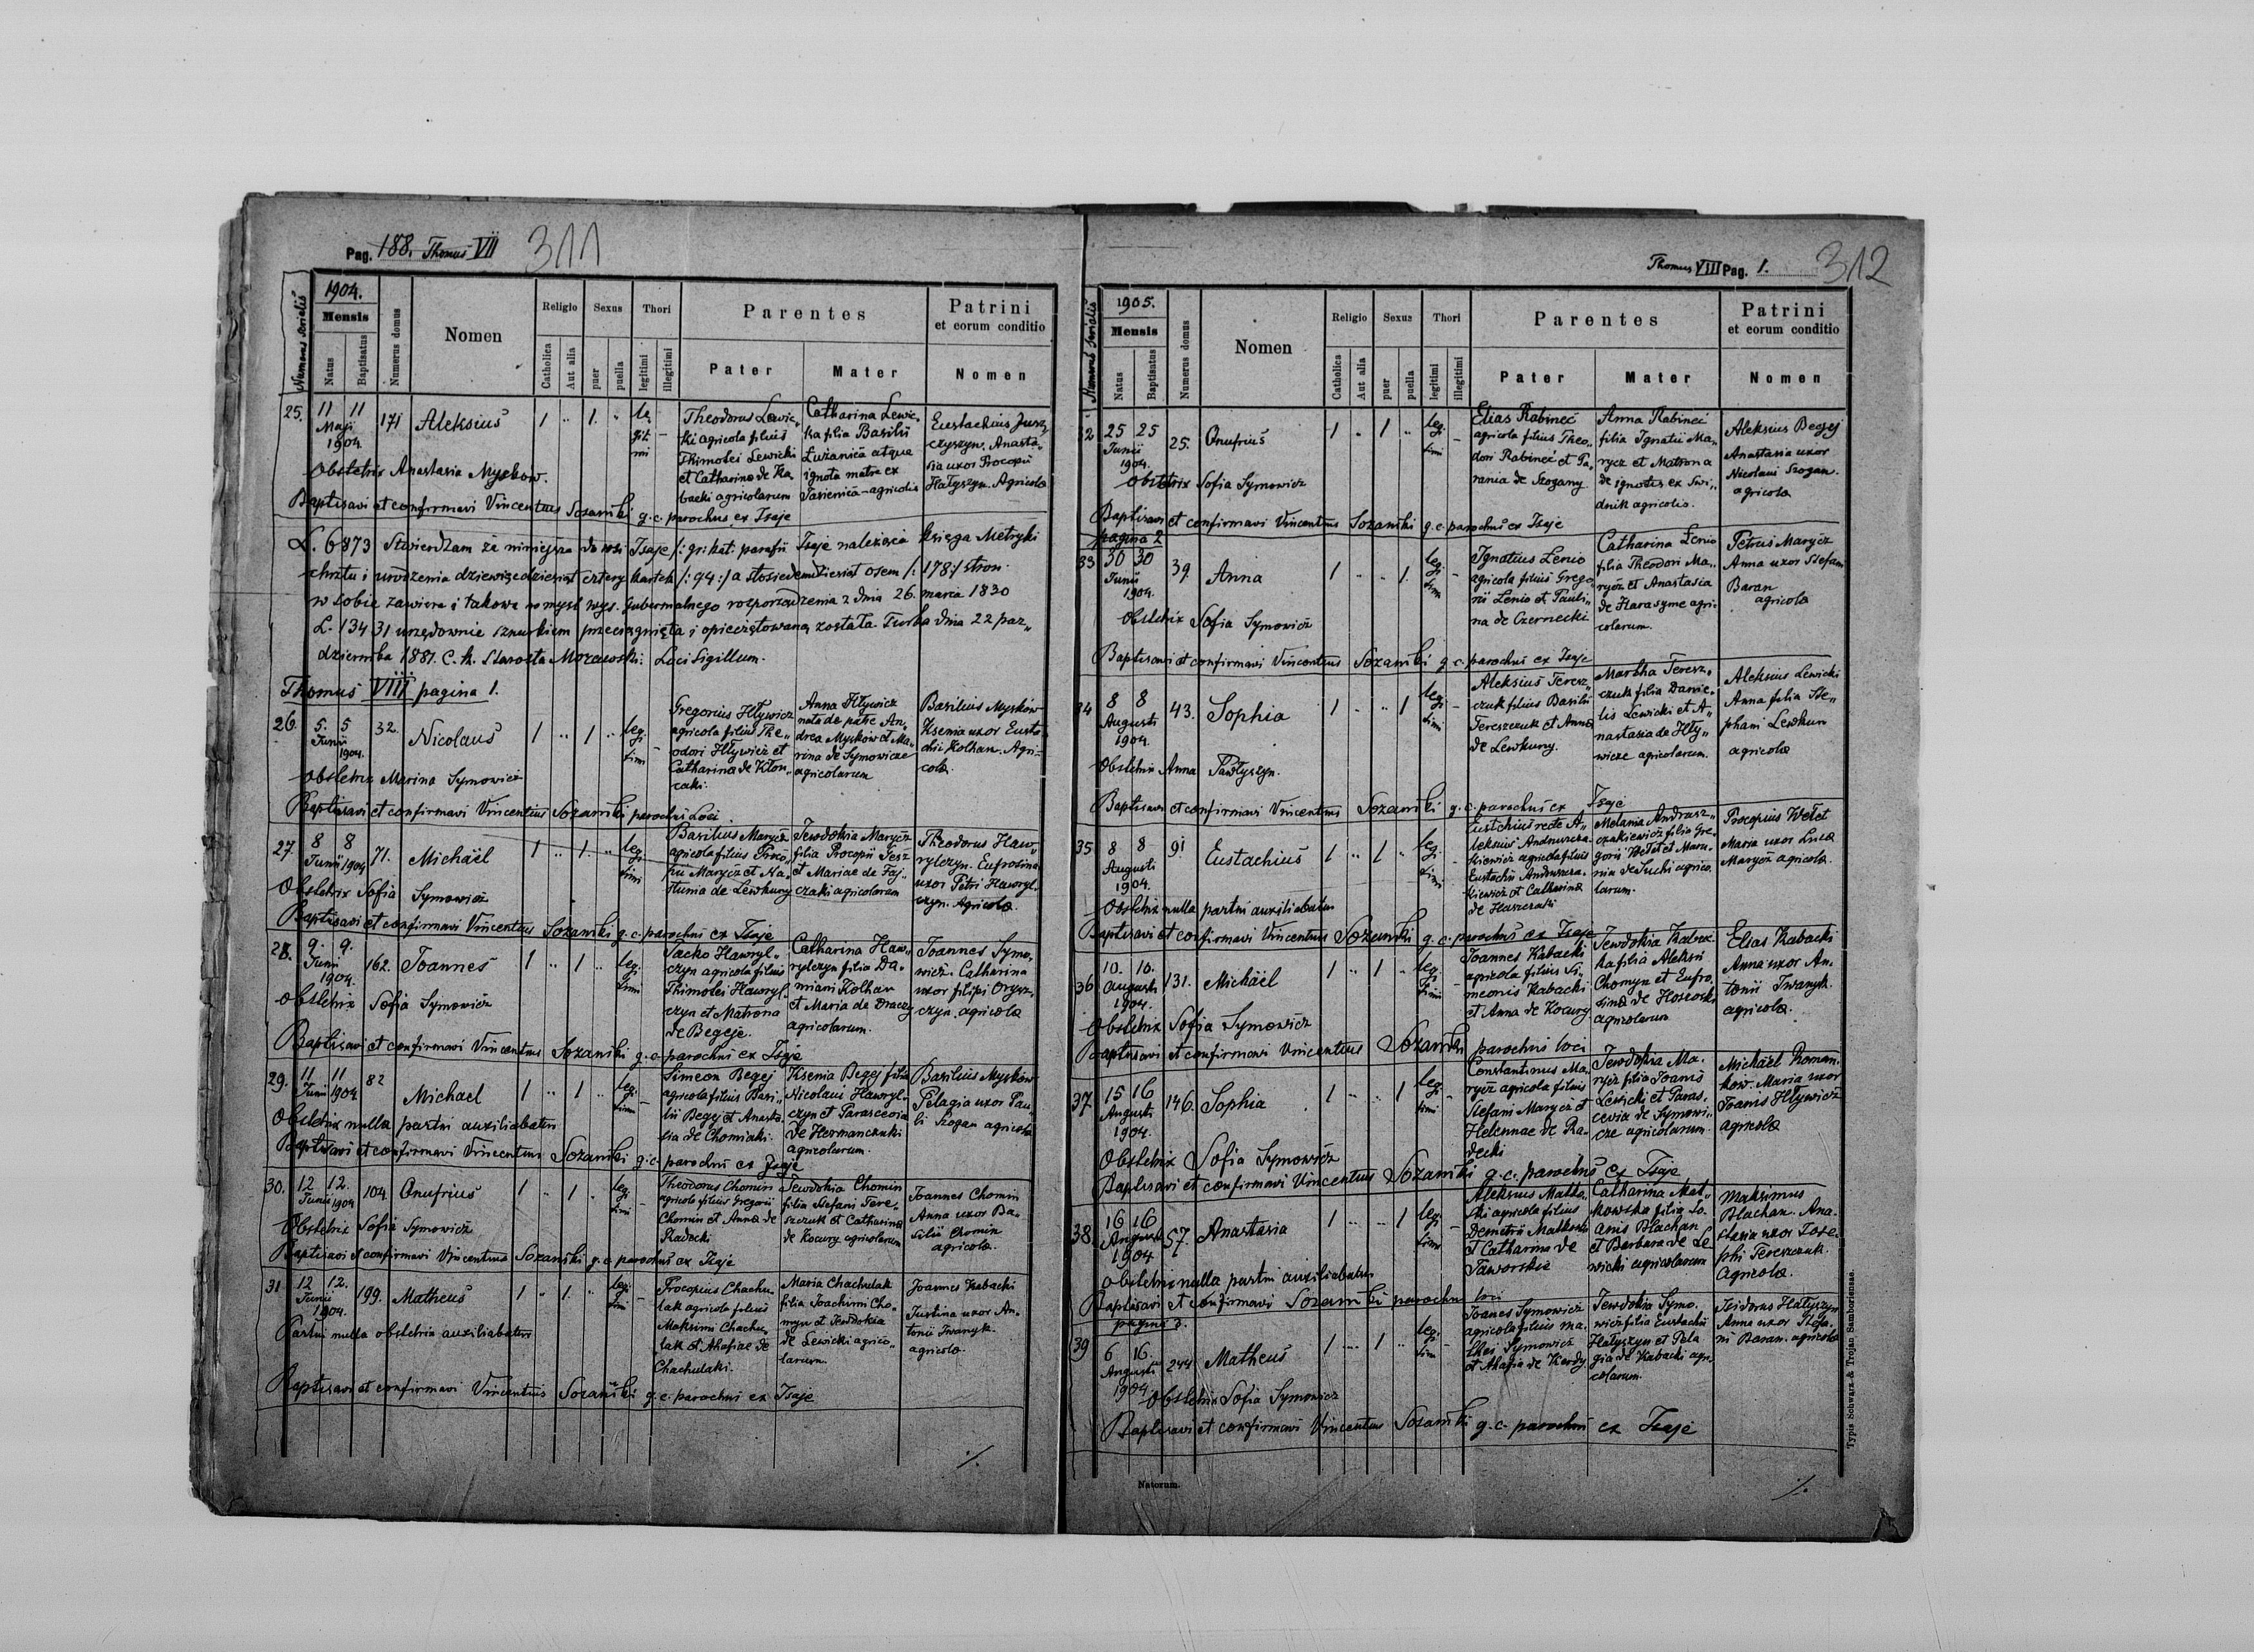 Pag. 188. Thomus VII 311
Numerus serialis
1904.
Mensis
Natus
Baptisatus
Numerus domus
Nomen
Religio
Catholica
Aut alia
Sexus
puer
puella
Thori
legitimi
illegitimi
Parentes
Pater
Mater
Patrini
et eorum conditio
Nomen
25. 11 11 171 Aleksius 1 " 1. " le
Maji
1904
giti
mi
Theodorus Lewic„
ki agricola filius
Thimotei Lewicki
et Catharina de Ka
backi agricolarum
Catharina Lewic„
ka filia Basilii
Łużanica atque
ignota matre ex
Jasienica - agricolis
Eustachius Jurz
czyszyn. Anasta„
sia uxor Procopii
Hałyszyn. Agricola
Obstetrix Anastasia Myskow.
Baptisavi et confirmavi Vincentius Sozański g. c. parochus ex Isaje
L. 6873 Stwierdzam że niniejsza do wsi Isaje /: gr: kat: parafii Isaje należąca księga Metryki
chrztu i urodzenia dziewięćdziesiąt cztery kartek /: 94 :/ a stosiedemdziesiąt osem /: 178 :/ stron
w sobie zawiera i takowa w myśl wys. Gubernialnego rozporządzenia z dnia 26. marca 1830
L. 13431 urzędownie sznurkiem przeciągnięta i opieczętowaną została. Turka dnia 22 paz„
dziernika 1881. C. k. Starosta Morawski: Loci Sigillum.
Thomus VIII pagina 1.
26. 5. 5 32. Nicolaus 1 " 1 " leg
Junii
1904.
i
timi
Gregorius Hływicz
agricola filius The„
odori Hływicz et
Catharina de Kłon„
caki.
Anna Hływicz
nata de patre An„
drea Myskow et Ma„
rina de Symowicze
agricolarum
Basilius Myskow
Ksenia uxor Eusta
chii Kolhan. Agri„
cola.
Obstetrix Marina Symowicz
Baptisavi et confirmavi Vincentius Sozański parochus Loci.
27. 8 8 71. Michaël 1 " 1. " leg
Junii 1904
i
timi
Basilius Marycz
agricola filius Proco„
pii Marycz et Na„
stunia de Lewkuny
Jewdokia Marycz
filia Procopii Fesz
et Mariae de Faj„
czaki agricolarum
Theodorus Haw„
rylczyn. Eufrosina
uxor Petri Hawryl„
czyn. Agricola.
Obstetrix Sofia Symowicz
Baptisavi et confirmavi Vincentius Sozański g. c. parochus ex Isaje
28. 9. 9. 162. Joannes 1 " 1 " leg
Junii
1904.
i
timi
Jacko Hawryl„
czyn agricola filius
Thimotei Hawryl„
czyn et Matrona
de Begeje.
Catharina Haw„
rylczyn filia Da„
miani Kolhan
et Maria de Dracz
agricolarum.
Joannes Symo„
wicz. Catharina
uxor filipi Orysz„
czyn. agricola
Obstetrix Sofia Symowicz
Baptisavi et confirmavi Vincentius Sozański g. c. parochus ex Isaje
29. 11 11 82 Michael 1 " 1 " leg
Junii 1904
i
timi
Simeon Begej
agricola filius Basi„
lii Begej et Anasta
sia de Chomiaki.
Ksenia Begej filia
Nicolaus Hawryl„
czyn et Parasceia
de Hermanczuki
agricolarum.
Basilius Myskow
Pelagia uxor Pau„
li Szogan agricola
Obstetrix nulla partui auxiliabatur
Baptisavi et confirmavi Vincentius Sozański g. c. parochus ex Isaje
30. 12 12. 104. Onufrius 1 " 1 " leg
Junii 1904
i
timi
Theodorus Chomin
agricola filius Gregorii
Chomin et Anna de
Radecki
Jewdokia Chomin
filia Stefani Tere„
szczuk et Catharina
de Kocury agricolarum
Joannes Chomin
Anna uxor Ba„
silii Chomin
agricola.
Obstetrix Sofia Symowicz
Baptisavi et confirmavi Vincentius Sozański g. c. parochus ex Isaje
31 12 12. 199. Matheus 1 " 1. " leg
Junii
1904.
i
timi
Procopius Chachu
lak agricola filius
Maksimi Chachu„
lak et Ahafiae de
Chachulaki.
Maria Chachulak
filia Joachimi Cho„
myn et Jewdokia
de Lewicki agrico„
larum.
Joannes Kabacki
Justina uxor An„
tonii Iwanyk.
agricola.
Partui nulla obstetrix auxiliabatur
Baptisavi et confirmavi Vincentius Sozański g. c. parochus ex Isaje
./.
Thomus VIII Pag. 1. 312
Numerus serialis
1905.
Mensis
Natus
Baptisatus
Numerus domus
Nomen
Religio
Catholica
Aut alia
Sexus
puer
puella
Thori
legitimi
illegitimi
Parentes
Pater
Mater
Patrini
et eorum conditio
Nomen
32 25 25 25. Onufrius 1 " 1 " leg.
Junii
1904.
i
timi
Elias Rabineć
agricola filius Theo„
dori Rabineć et Pa„
rania de Szogany
Anna Rabineć
filia Ignatii Ma„
rycz et Matrona
de ignotis ex Swi„
dnik agricolis.
Aleksius Begej
Anastasia uxor
Nicolaus Szogan.
agricola
Obstetrix Sofia Symowicz
Baptisavi et confirmavi Vincentius Sozański g. c. parochus ex Isaje
pagina 2
33 30 30 39. Anna 1 " " 1. leg.
Junii
1904.
i
timi
Ignatius Lenio
agricola filius Grego„
rii Lenio et Pauli„
na de Czernecki
Catharina Lenio
filia Theodori Ma„
rycz et Anastasia
de Harasyme agri„
colarum.
Petrus Marycz
Anna uxor Stefani
Baran
agricola
Obstetrix Sofia Symowicz
Baptisavi et confirmavi Vincentius Sozański g. c. parochus ex Isaje
34 8 8 43. Sophia 1 " " 1 leg.
Augusti
1904.
i
timi
Aleksius Teresz„
czuk filius Basilii
Tereszczuk et Anna
de Lewkuny.
Martha Teresz„
czuk filia Danie„
lis Lewicki et A„
nastasia de Hły„
wicze agricolarum.
Aleksius Lewicki
Anna filia Ste„
phani Lewkun
agricola
Obstetrix Anna Pawłyszyn.
Baptisavi et confirmavi Vincentius Sozański g. c. parochus ex Isaje
35 8 8 91 Eustachius 1 " 1 " leg.
Augusti
1904.
i
timi
Eustchius recte A„
leksius Andruszcza
kiewicz agricola filius
Eustachii Andruszcza„
kiewicz et Catharina
de Haszczaki
Melania Andrusz„
czakiewicz filia Gre„
gorii Wełet et Maru„
nia de Suchi agrico„
larum.
Procopius Wełet
Maria uxor Luca
Marycz agricola.
Obstetrix nulla partui auxiliabatur
Baptisavi et confirmavi Vincentius Sozański g. c. parochus ex Isaje
36 10. 10. 131. Michäel 1 " 1 " leg.
Augusti
1904.
i
timi
Joannes Kabacki
agricola filius Si„
meonis Kabacki
et Anna de Kocury
Jewdokia Kabac„
ka filia Aleksii
Chomyn et Eufro„
sina de Hoszowski
agricolarum
Elias Kabacki
Anna uxor An„
tonii Iwanyk.
agricola.
Obstetrix Sofia Symowicz
Baptisavi et confirmavi Vincentius Sozański parochus loci
37. 15 16 146. Sophia 1 " " 1 leg.
Augusti
1904.
i
timi
Constantinus Ma„
rycz agricola filius
Stefani Marycz et
Helennae de Ra„
decki
Jewdokia Ma„
rycz filia Joanis
Lewicki et Paras„
cevia de Symowi„
cze agricolarum.
Michäel Roman„
kow. Maria uxor
Joanis Hływicz
agricola
Obstetrix Sofia Symowicz
Baptisavi et confirmavi Vincentius Sozański g. c. parochus ex Isaje
38. 16 16 57. Anastasia 1 " " 1 leg.
Augusti
1904
i
timi
Aleksius Matkow„
ski agricola filius
Demetrii Matkowski
et Catharina de
Jaworskie
Catharina Mat„
kowska filia Jo„
anis Błachan
et Barbara de Le
wicki agricolarum
Maksimus
Błachan. Ana„
stasia uxor Jose„
phi Tereszczuk.
Agricola.
Obstetrix nulla partui auxiliabatur
Baptisavi et confirmavi Sozański parochus loci
pagina 3.
39 6 16. 244 Matheus 1 " 1 " leg.
Augusti
1904
i
timi
Joanes Symowicz
agricola filius Ma„
thei Symowicz
et Ahafia de Kerdy
Jewdokia Symo„
wicz filia Eustachii
Hałyszyn et Pela
gia de Kabacki agri„
colarum.
Isidorus Hałyszyn
Anna uxor Stefa„
ni Baran. agricola
Obstetrix Sofia Symowicz
Baptisavi et confirmavi Vincentius Sozański g. c. parochus ex Isaje
Natorum.
./.
Typis Schwarz & Trojan Samboriensae.